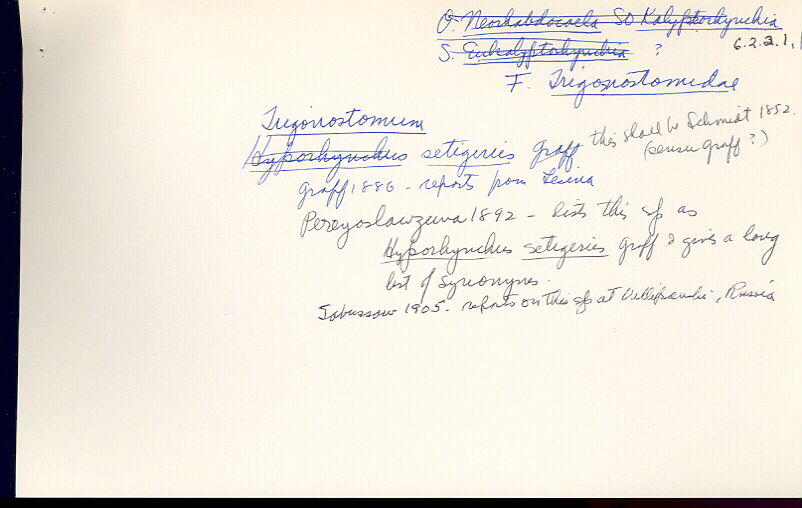 O. Neorhabdocoela SO Kalyptorhynchia
S. Eukalyptorhynchia ? 6.2.2.1.
F. Trigonostomidae
Trigonostomum
Hyporhynchus setigerius Graff this should be Schmidt 1852.
(sensu Graff?)
Graff 1886 - reports from Lesina
Pereyaslawzewa 1892 - lists this sp as
Hyporhynchus setigerius Graff & gives a long
list of synonyms.
Sabussow 1905 - reports on this sp at Villefranche, Russia